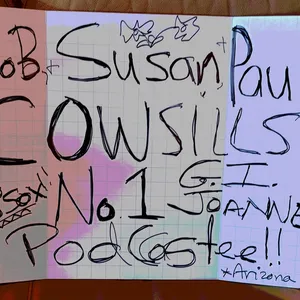 ob + Susan, + Paul
COWSILLS
No.1 G.I. JOANNE
PodCastee!!
+Arizona